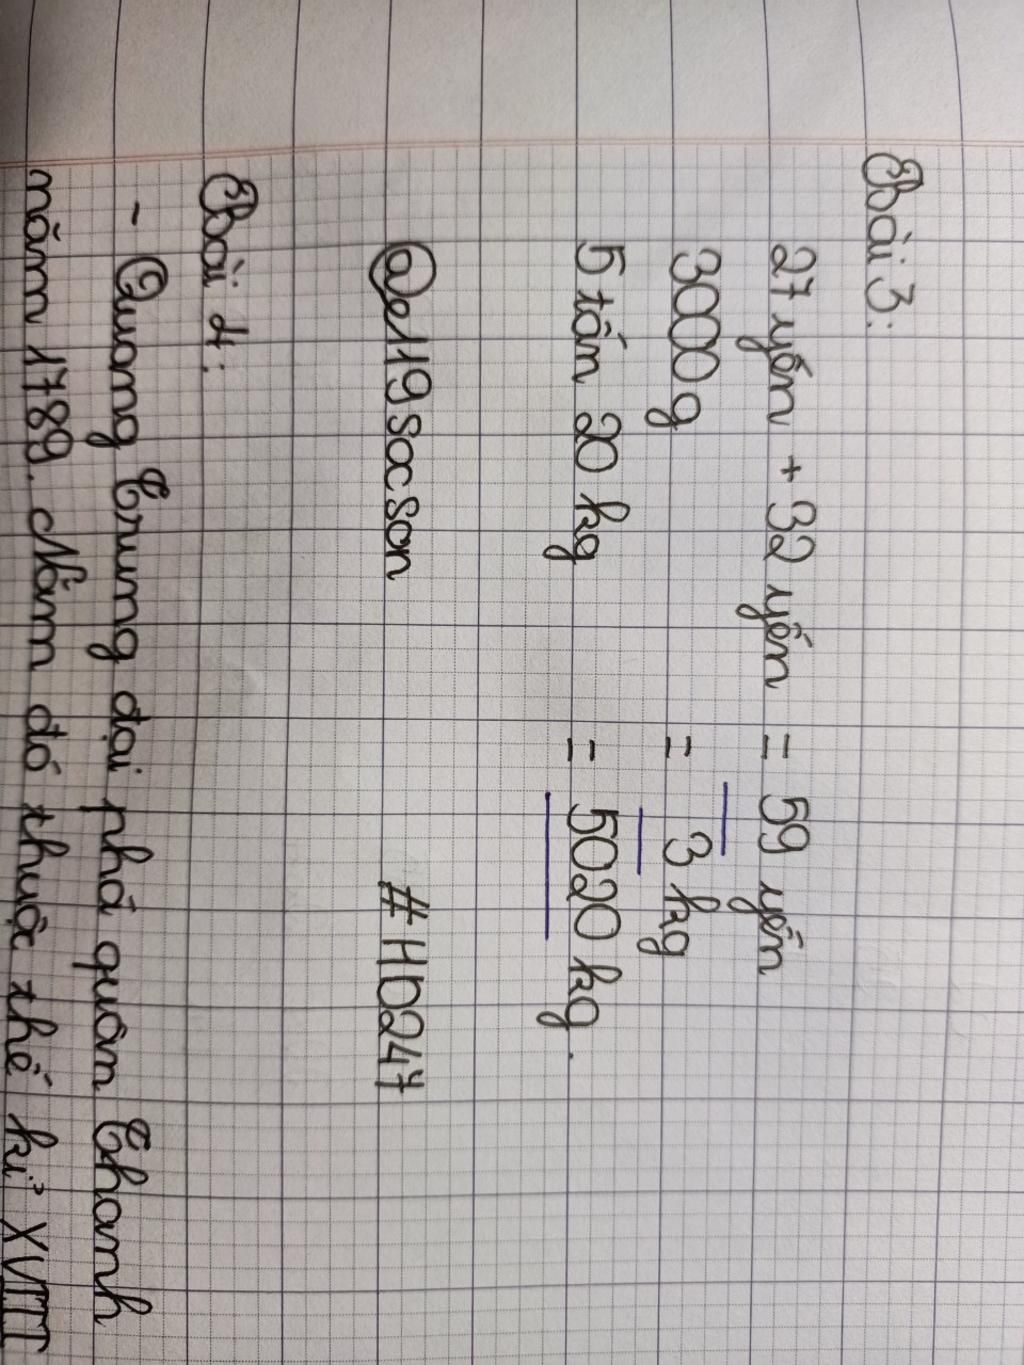 Bài 3:
27 yến + 32 yến = 59 yến
3000 g = 3 kg
5 tấn 20 kg = 5020 kg.
@e119socson #HD247
Bài 4:
- Quang Trung đại phá quân Thanh
năm 1789. Năm đó thuộc thế kỉ XVIII